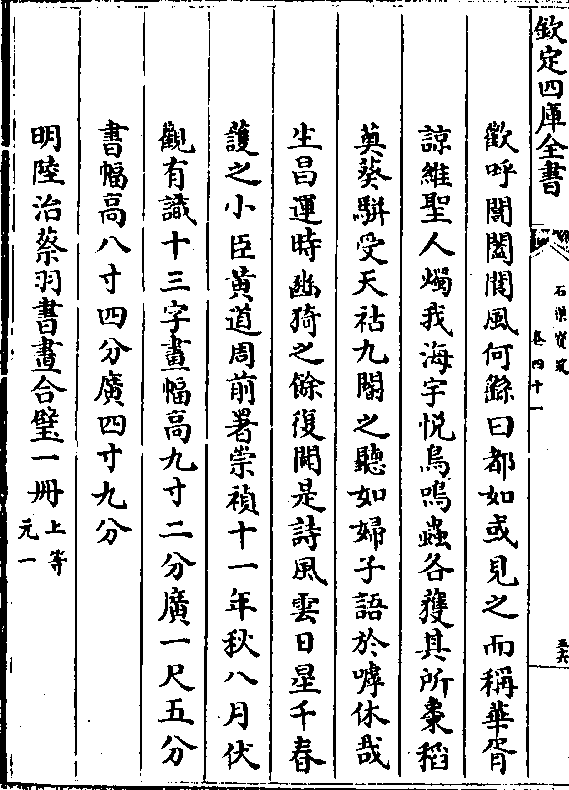 欽定四庫全書
石渠寶笈
卷四十一
歡呼閶闔閬風何繇曰都如或見之而稱華胥
諒維聖人燭我海宇悦烏嗚蟲各獲其所棗稻
蓂葵駢受天祜九閽之聽如婦子語於嘑休哉
生昌運時幽猗之餘復是詩風雲日星千春
護之小臣黄道周前署崇禎十一年秋八月伏
觀有識十三字畫幅高九寸二分廣一尺五分
書幅高八寸四分廣四寸九分
明陸治蔡羽書畫合璧一冊上等
元一